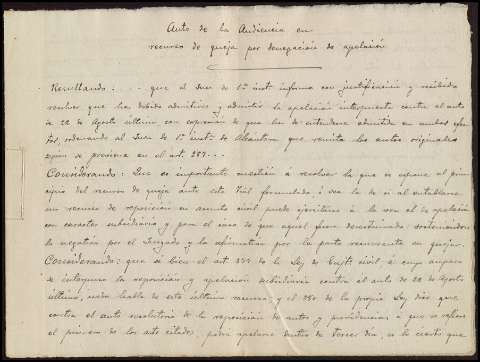 Auto de la Audiencia en
recurso de queja por denegación de apelación
Resultando: . . . que el Juez de 1ª inst. informa con justificación y recibida
resolver que ha debido admitirse y admitir la apelación interpuesta contra el auto
de 22 de Agosto último con expresión de que ha de entenderse admitida en ambos efec
tos, ordenando al Juez de 1ª inst. de Alcántara que remita los autos originales
según se previene en el art. 387 . . .
Considerando: Que es importante cuestión á resolver la que se expone al prin
cipio del recurso de queja ante este Tral formulado, ó sea la de si al entablarse
un recurso de reposición en asunto civil puede ejercitarse á la vez el de apelación
con carácter subsidiario y para el caso de que aquel fuera desestimado, sosteniéndose
la negativa por el Juzgado y la afirmativa por la parte recurrente en queja.
Considerando: que si bien el art. 377 de la Ley de Enjto civil á cuyo amparo
se interpuso la reposición y apelación subsidiaria contra el auto de 22 de Agosto
último, nada habla de este último recurso; y el 380 de la propia Ley dice que
contra el auto resolutorio de la reposición de autos y providencias á que se refiere
el primero de los arts citados, podrá apelarse dentro de tercer día, es lo cierto que